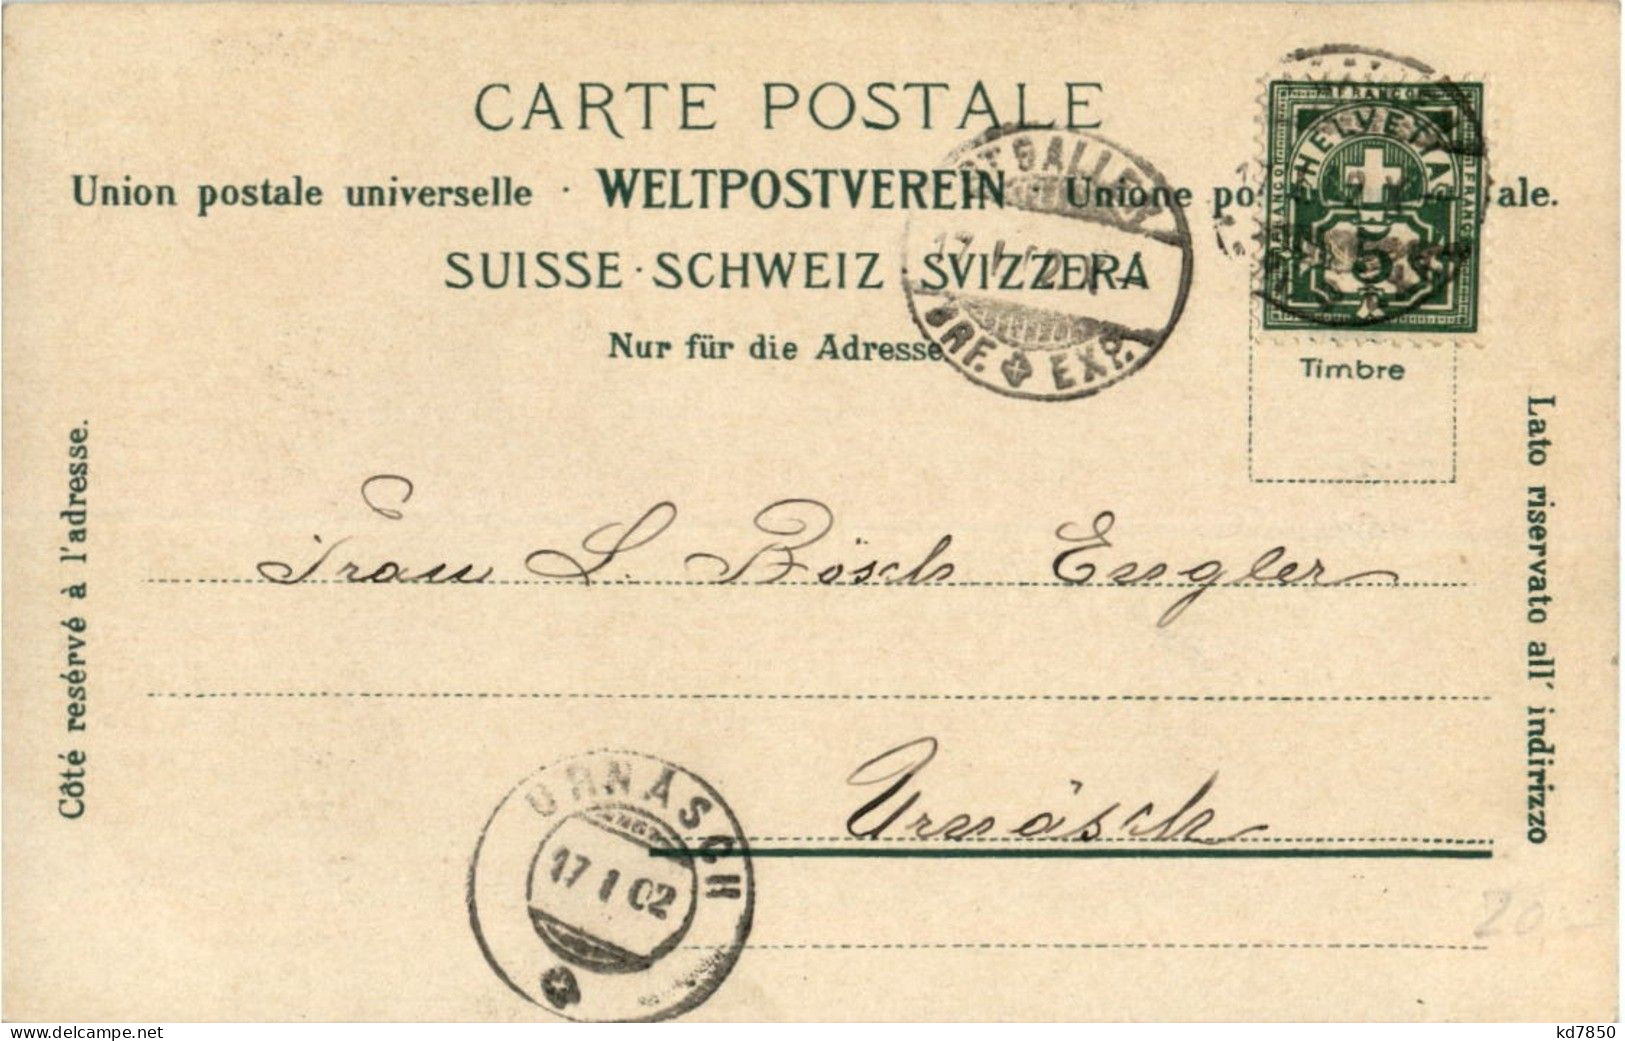 CARTE POSTALE
Union postale universelle · WELTPOSTVEREIN · Unione po ale.
SUISSE · SCHWEIZ · SVIZZERA
Nur für die Adresse
FRANCO
HELVETIA
FRANCO
FRANCO
5
ST GALLEN
17. I. 02
BRF. EXP.
Timbre
Côté resérvé à l'adresse.
Lato riservato all' indirizzo
Frau L. Bösch Engler
Urnäsch
URNÄSCH
17 I 02
20.-
www.delcampe.net
kd7850